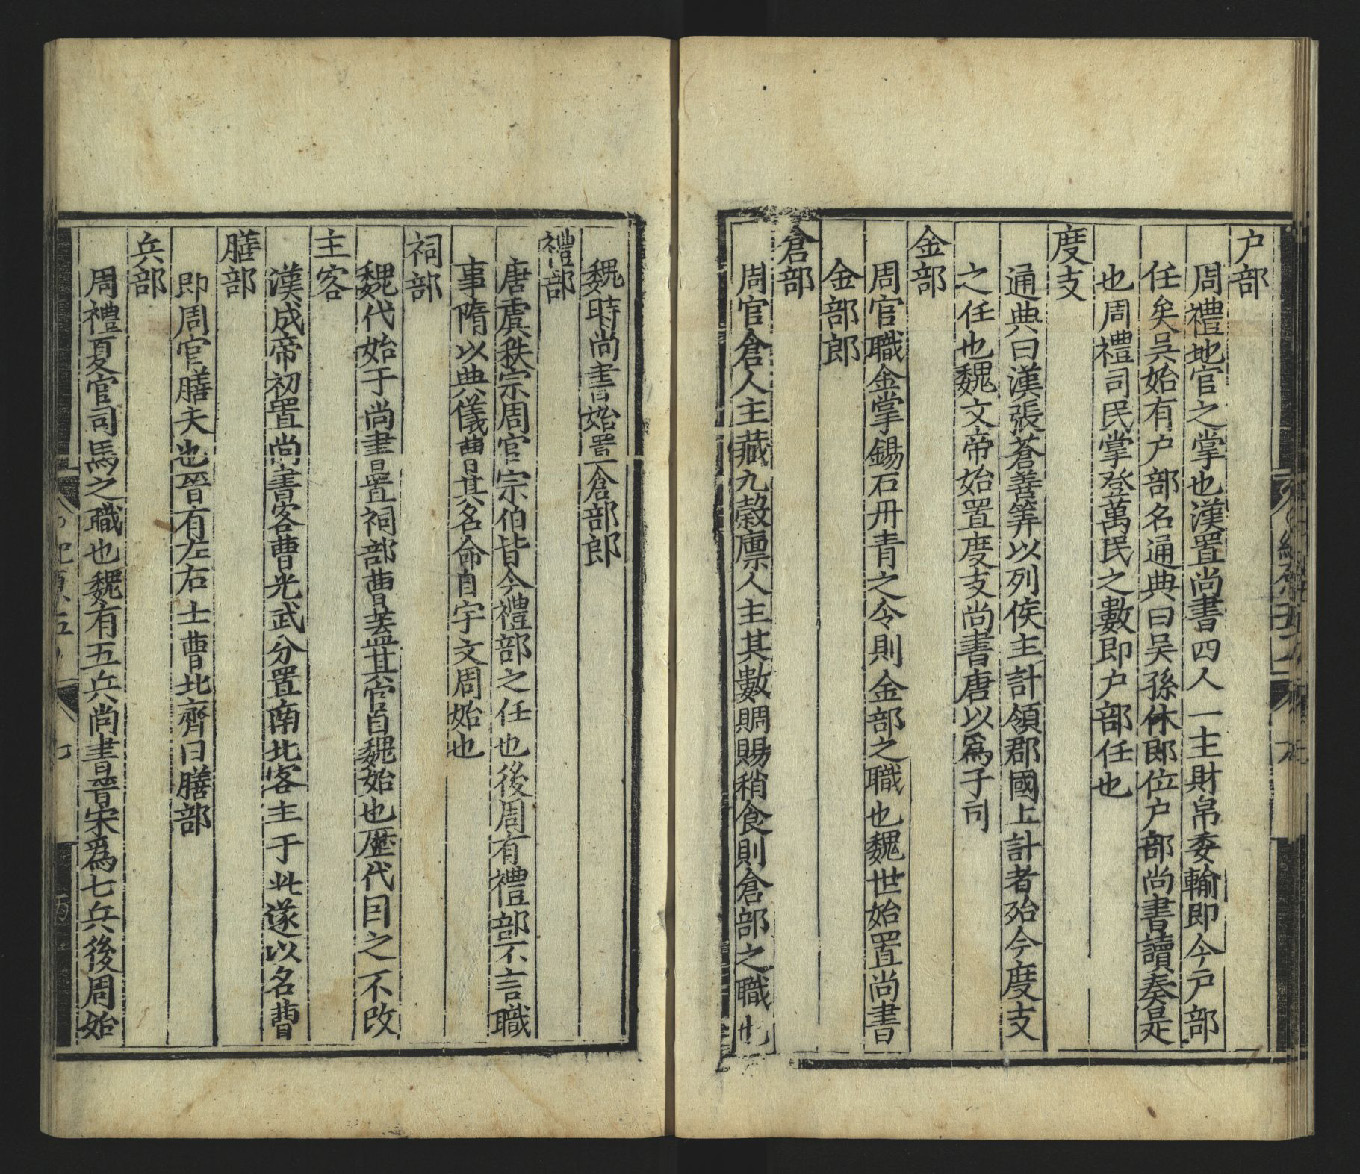 户部
周禮地官之掌也漢置尚書四人一主財帛委輸即今戸部
任矣吳始有户部名通典曰吳孫休郎位户部尚書讀奏是
也周禮司民掌登萬民之數即户部任也
度支
通典曰漢張蒼善筭以列侯主計領郡國上計者殆今度支
之任也魏文帝始置度支尚書唐以爲子司
金部
周官職金掌錫石丹青之令則金部之職也魏世始置尚書
金部郎
倉部
周官倉人主藏九穀廪人主其數賙賜稍食則倉部之職也
魏時尚書始置倉部郎
禮部
唐虞秩宗周官宗伯皆今禮部之任也後周有禮部不言職
事隋以典儀曹其名命自宇文周始也
祠部
魏代始于尚書置祠部曹葢其官自魏始也歷代因之不改
主客
漢成帝初置尚書客曹光武分置南北客主于此遂以名曹
膳部
即周官膳夫也晉有左右士曹北齊曰膳部
兵部
周禮夏官司馬之職也魏有五兵尚書晉宋爲七兵後周始